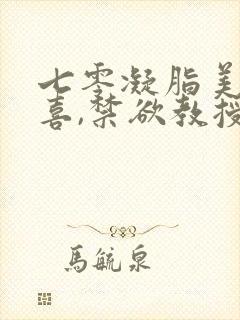 七零凝脂美
喜,禁欲教授
馬毓泉